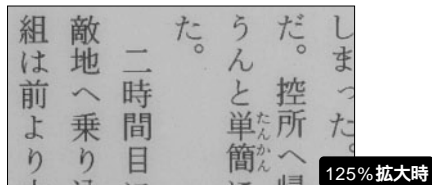 しまった。
だ。控所へ帰
うんと単簡に
た。
二時間目に
敵地へ乗り込
組は前より
125%拡大時